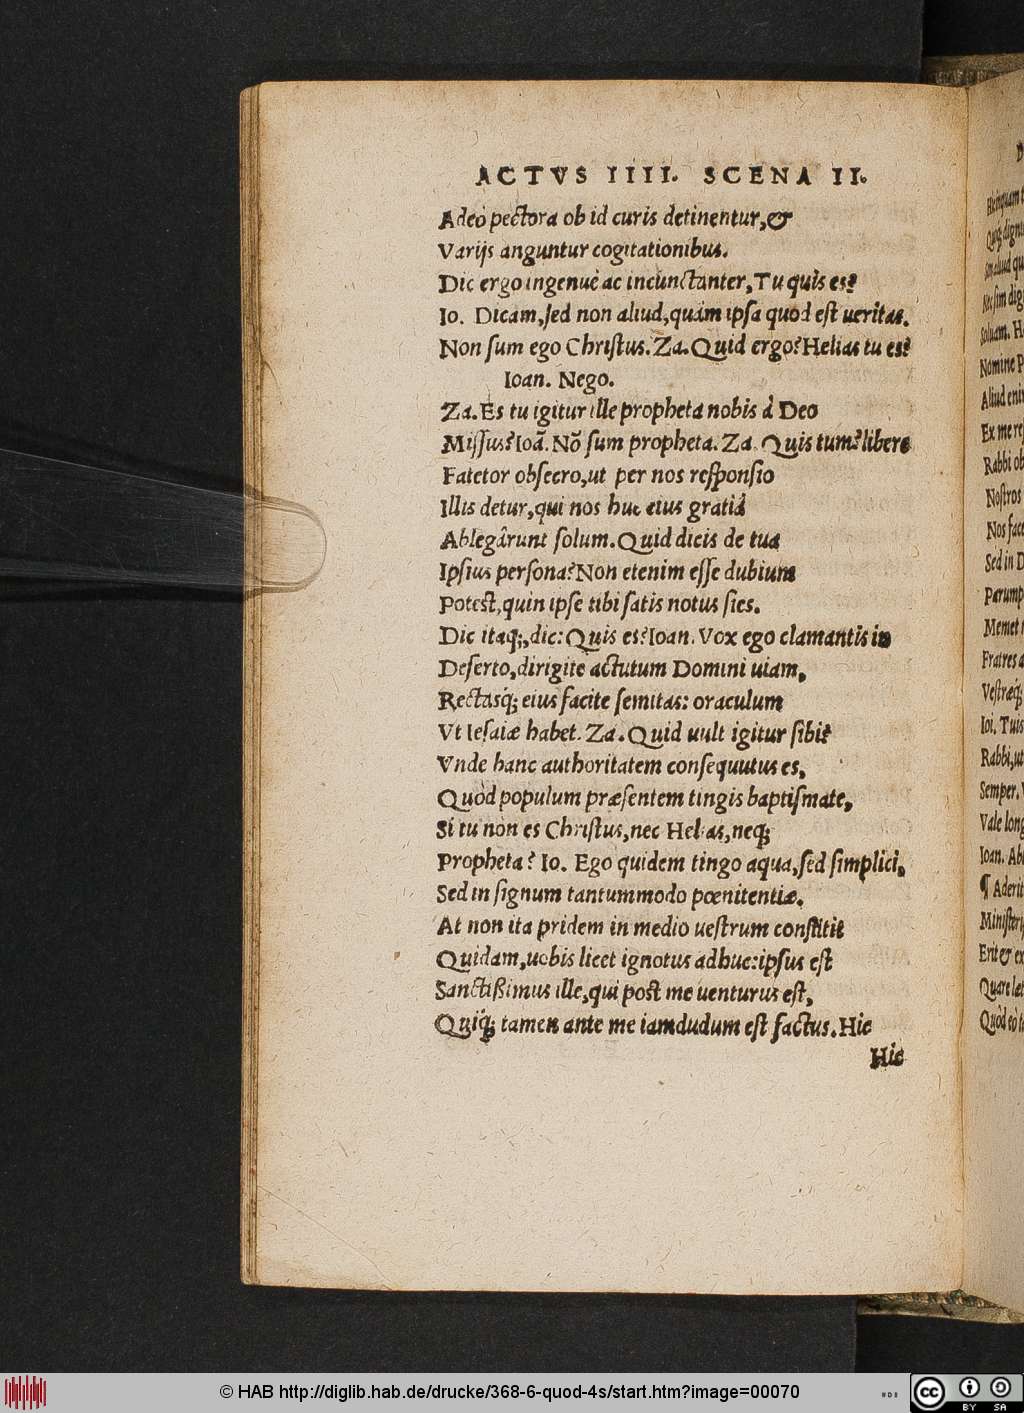 ACTVS IIII. SCENA II.
Adeò pectora ob id curis detinentur, &
Varijs anguntur cogitationibus.
Dic ergo ingenuè ac incunctanter, Tu quis es?
Io. Dicam, sed non aliud, quàm ipsa quod est ueritas.
Non sum ego Christus. Za. Quid ergo? Helias tu es?
Ioan. Nego.
Za. Es tu igitur ille propheta nobis à Deo
Missus? Ioã. Nõ sum propheta. Za. Quis tum? libere
Fatetor obsecro, ut per nos responsio
Illis detur, qui nos huc eius gratiâ
Ablegârunt solum. Quid dicis de tua
Ipsius persona? Non etenim esse dubium
Potest, quin ipse tibi satis notus sies.
Dic itaq;, dic: Quis es? Ioan. Vox ego clamantis in
Deserto, dirigite actutum Domini uiam,
Rectasq́; eius facite semitas: oraculum
Vt Iesaiæ habet. Za. Quid uult igitur sibi?
Vnde hanc authoritatem consequutus es,
Quòd populum præsentem tingis baptismate,
Si tu non es Christus, nec Helias, neq;
Propheta? Io. Ego quidem tingo aqua, sed simplici,
Sed in signum tantummodo pœnitentiæ.
At non ita pridem in medio uestrum constitit
Quidam, uobis licet ignotus adhuc: ipsus est
Sanctißimus ille, qui post me uenturus est,
Quiq́; tamen ante me iamdudum est factus. Hic
Hic
Aliud eni
Ex me re
Rabbi ob
Nostros
Nos face
Sed in D
Parump
Memet
Fratres a
Vestræq́;
Ioi. Tuis
Rabbi, ut
Semper.
Vale long
Ioan. Ab
¶ Aderit
Ministeri
Erit & ex
Quare læt
Quòd eo
© HAB http://diglib.hab.de/drucke/368-6-quod-4s/start.htm?image=00070
cc BY SA